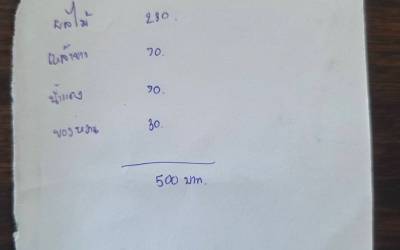 ผลไม้ 230.
เหล้าขาว 70.
น้ำแดง 70.
ของหวาน 30.
500 บาท.